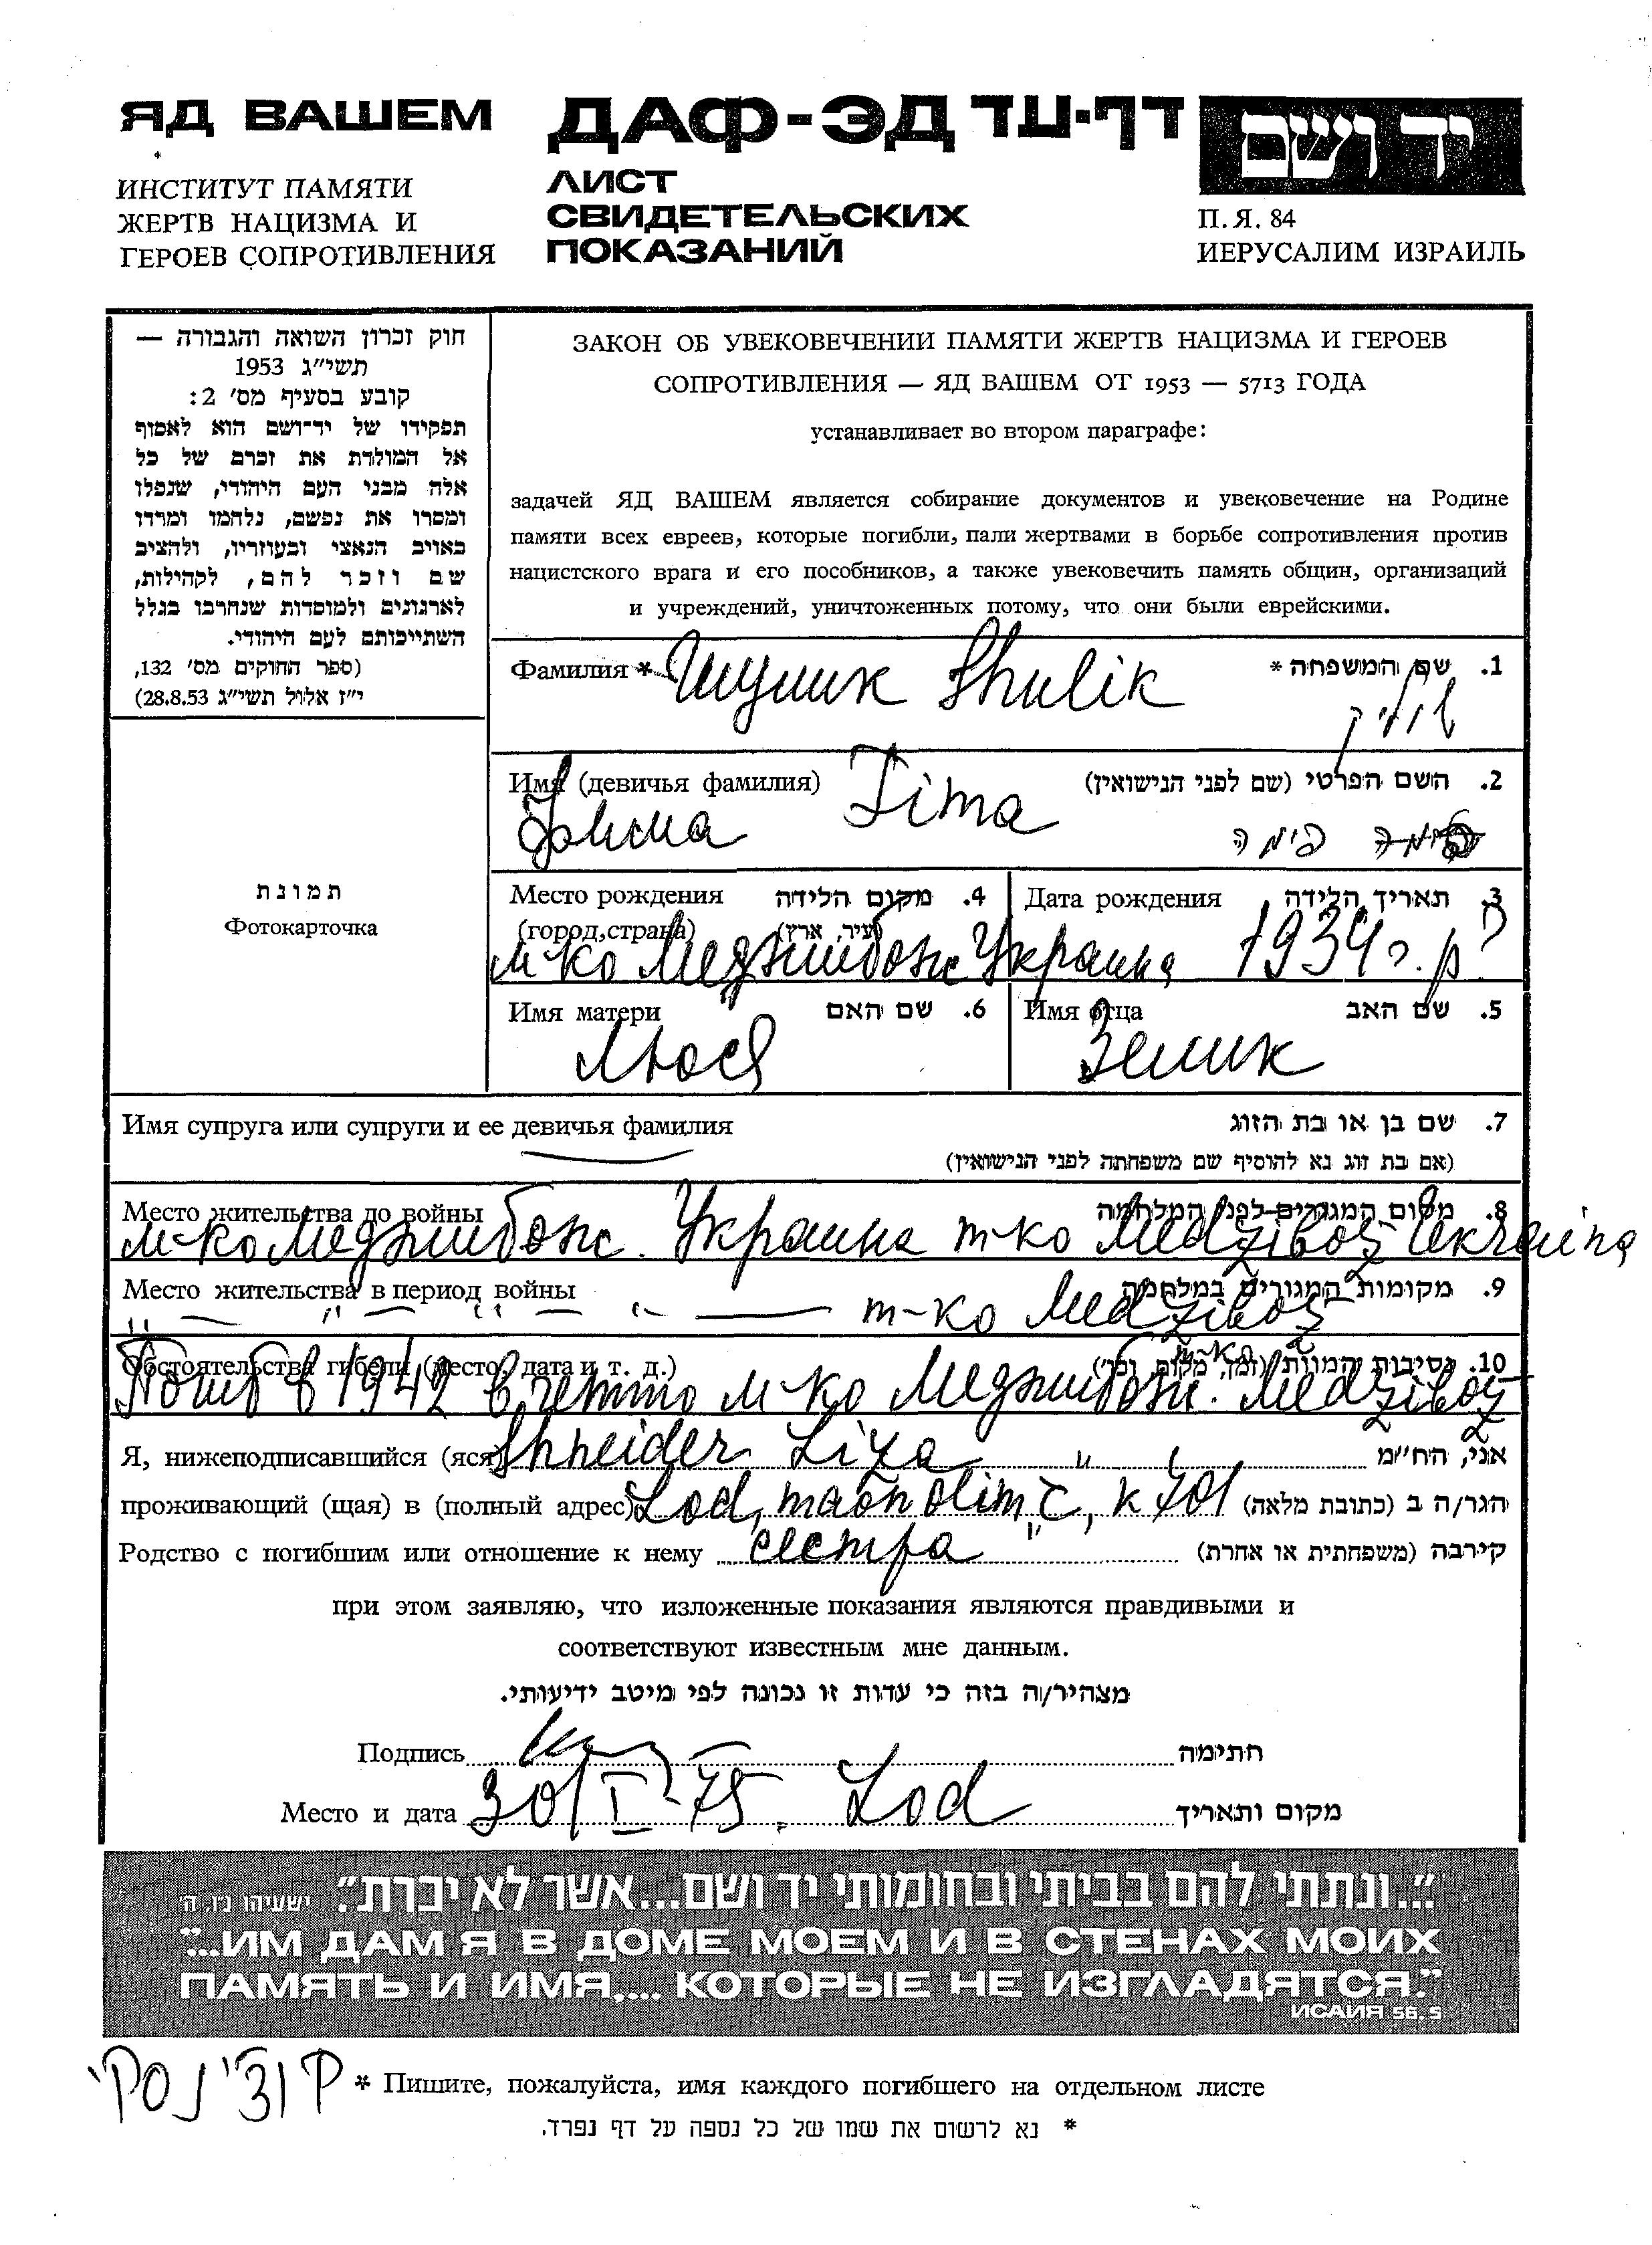 ЯД ВАШЕМ
ИНСТИТУТ ПАМЯТИ
ЖЕРТВ НАЦИЗМА И
ГЕРОЕВ СОПРОТИВЛЕНИЯ
ДАФ-ЭД דף-עד
ЛИСТ
СВИДЕТЕЛЬСКИХ
ПОКАЗАНИЙ
יד ושם
П.Я. 84
ИЕРУСАЛИМ ИЗРАИЛЬ
חוק זכרון השואה והגבורה —
תשי״ג 1953
קובע בסעיף מס׳ 2:
תפקידו של יד־ושם הוא לאסוף
אל המולדת את זכרם של כל
אלה מבני העם היהודי, שנפלו
ומסרו את נפשם, נלחמו ומרדו
באויב הנאצי ובעוזריו, ולהציב
שם וזכר להם, לקהילות,
לארגונים ולמוסדות שנחרבו בגלל
השתייכותם לעם היהודי.
(ספר החוקים מס׳ 132,
י״ז אלול תשי״ג 28.8.53)
ЗАКОН ОБ УВЕКОВЕЧЕНИИ ПАМЯТИ ЖЕРТВ НАЦИЗМА И ГЕРОЕВ
СОПРОТИВЛЕНИЯ — ЯД ВАШЕМ ОТ 1953 — 5713 ГОДА
устанавливает во втором параграфе:
задачей ЯД ВАШЕМ является собирание документов и увековечение на Родине
памяти всех евреев, которые погибли, пали жертвами в борьбе сопротивления против
нацистского врага и его пособников, а также увековечить память общин, организаций
и учреждений, уничтоженных потому, что они были еврейскими.
Фамилия * Шулик Shulik 1. שם המשפחה *
שוליק
Имя (девичья фамилия) 2. השם הפרטי (שם לפני הנישואין)
Фима Fima פימה
Место рождения 4. מקום הלידה
(город, страна) (עיר, ארץ)
м-ко Меджибож Украина
Дата рождения 3. תאריך הלידה
1934 г. р ?
Имя матери 6. שם האם
Люся
Имя отца 5. שם האב
Зелик
תמונת
Фотокарточка
Имя супруга или супруги и ее девичья фамилия 7. שם בן או בת הזוג
(אם בת זוג נא להוסיף שם משפחתה לפני הנישואין)
Место жительства до войны 8. מקום המגורים לפני המלחמה
м-ко Меджибож. Украина m-ko Medziboz Ukraina
Место жительства в период войны 9. מקומות המגורים במלחמה
— " — " — " — m-ko Medziboz
Обстоятельства гибели (место, дата и т. д.) 10. נסיבות המוות (זמן, מקום, וכו׳)
Погиб в 1942 в гетто м-ко Меджибож. m-ko Medziboz
Я, нижеподписавшийся (яся) Shneider Liza אני, הח״מ
проживающий (щая) в (полный адрес) Lod, הגר/ה ב (כתובת מלאה)
Родство с погибшим или отношение к нему сестра קירבה (משפחתית או אחרת)
при этом заявляю, что изложенные показания являются правдивыми и
соответствуют известным мне данным.
מצהיר/ה בזה כי עדות זו נכונה לפי מיטב ידיעותי.
Подпись חתימה
Место и дата 30/I-75. Lod מקום ותאריך
״...ונתתי להם בביתי ובחומותי יד ושם...אשר לא יכרת״. ישעיהו נ״ו, ה׳
"...ИМ ДАМ Я В ДОМЕ МОЕМ И В СТЕНАХ МОИХ
ПАМЯТЬ И ИМЯ,... КОТОРЫЕ НЕ ИЗГЛАДЯТСЯ."
ИСАИЯ 56. 5
* Пишите, пожалуйста, имя каждого погибшего на отдельном листе
* נא לרשום את שמו של כל נספה על דף נפרד.